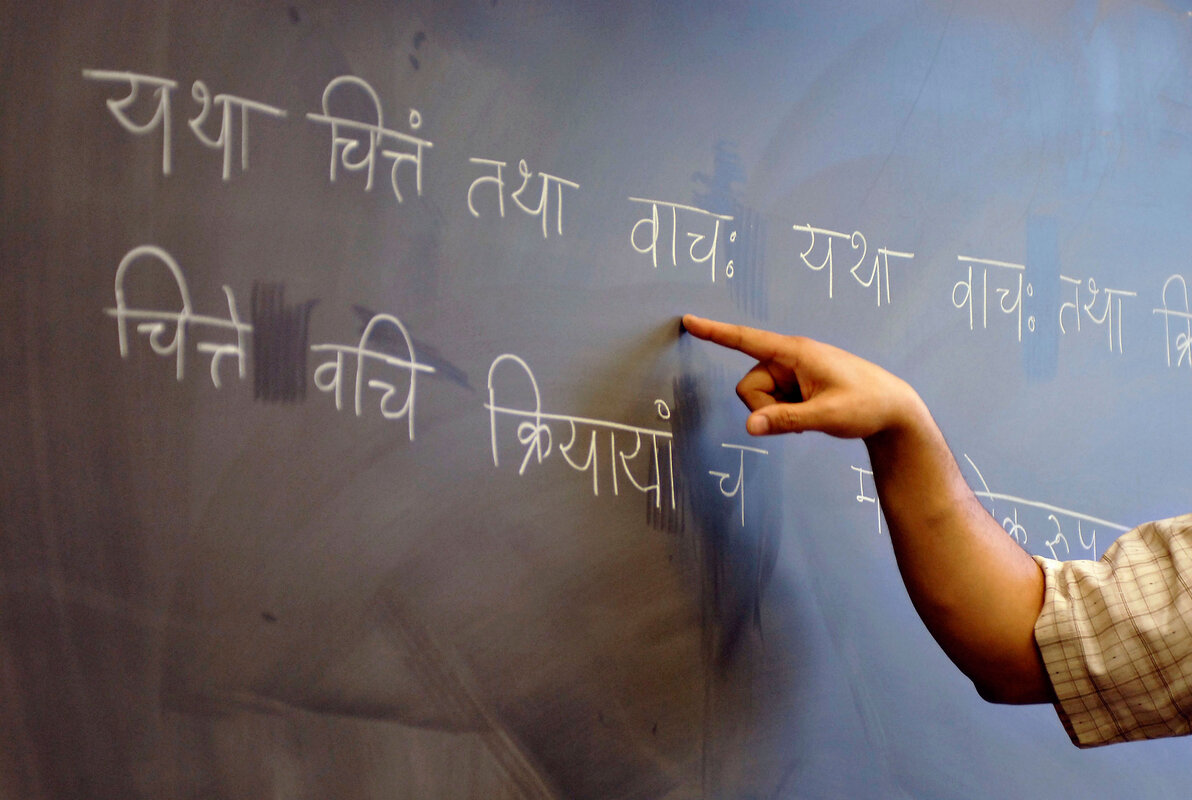 यथा चित्तं तथा वाचः यथा वाचः तथा
चित्ते वचि क्रियायां च